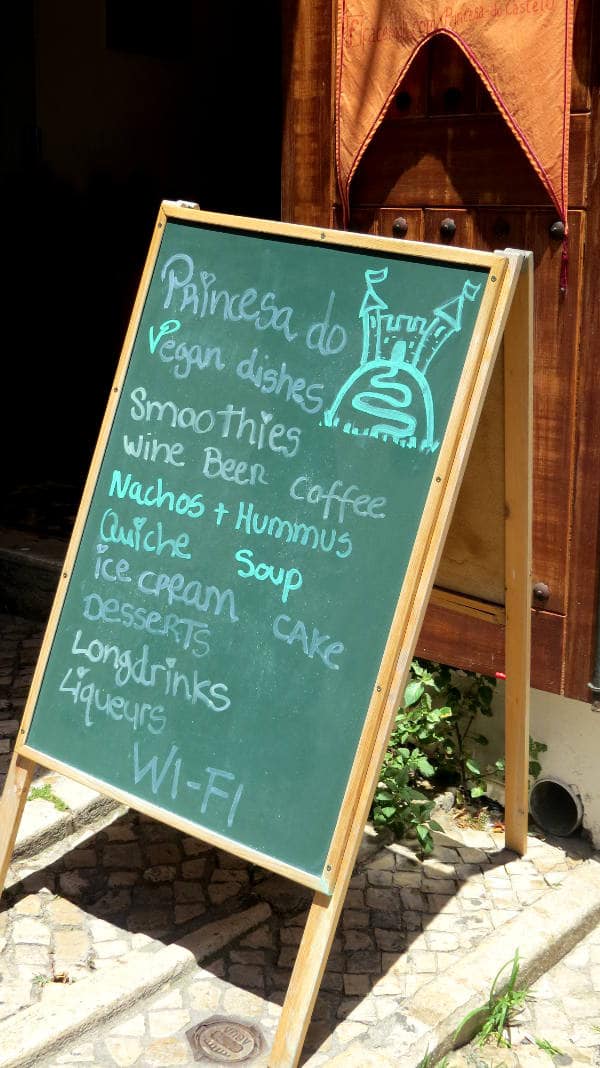 facebook.com/Princesa-do-Castelo
Princesa do
Vegan dishes
Smoothies
Wine Beer Coffee
Nachos + Hummus
Quiche Soup
ice cream cake
Desserts
Longdrinks
Liqueurs
WI-FI